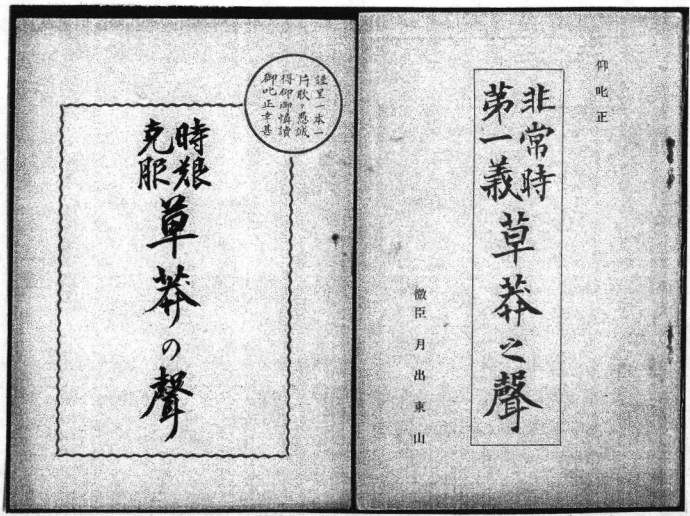 仰叱正
非常時
第一義
草莽之聲
微臣 月出東山
謹呈一本一
片耿々愚誠
得仰御憐讀
御叱正幸甚
時艱
克服
草莽の聲